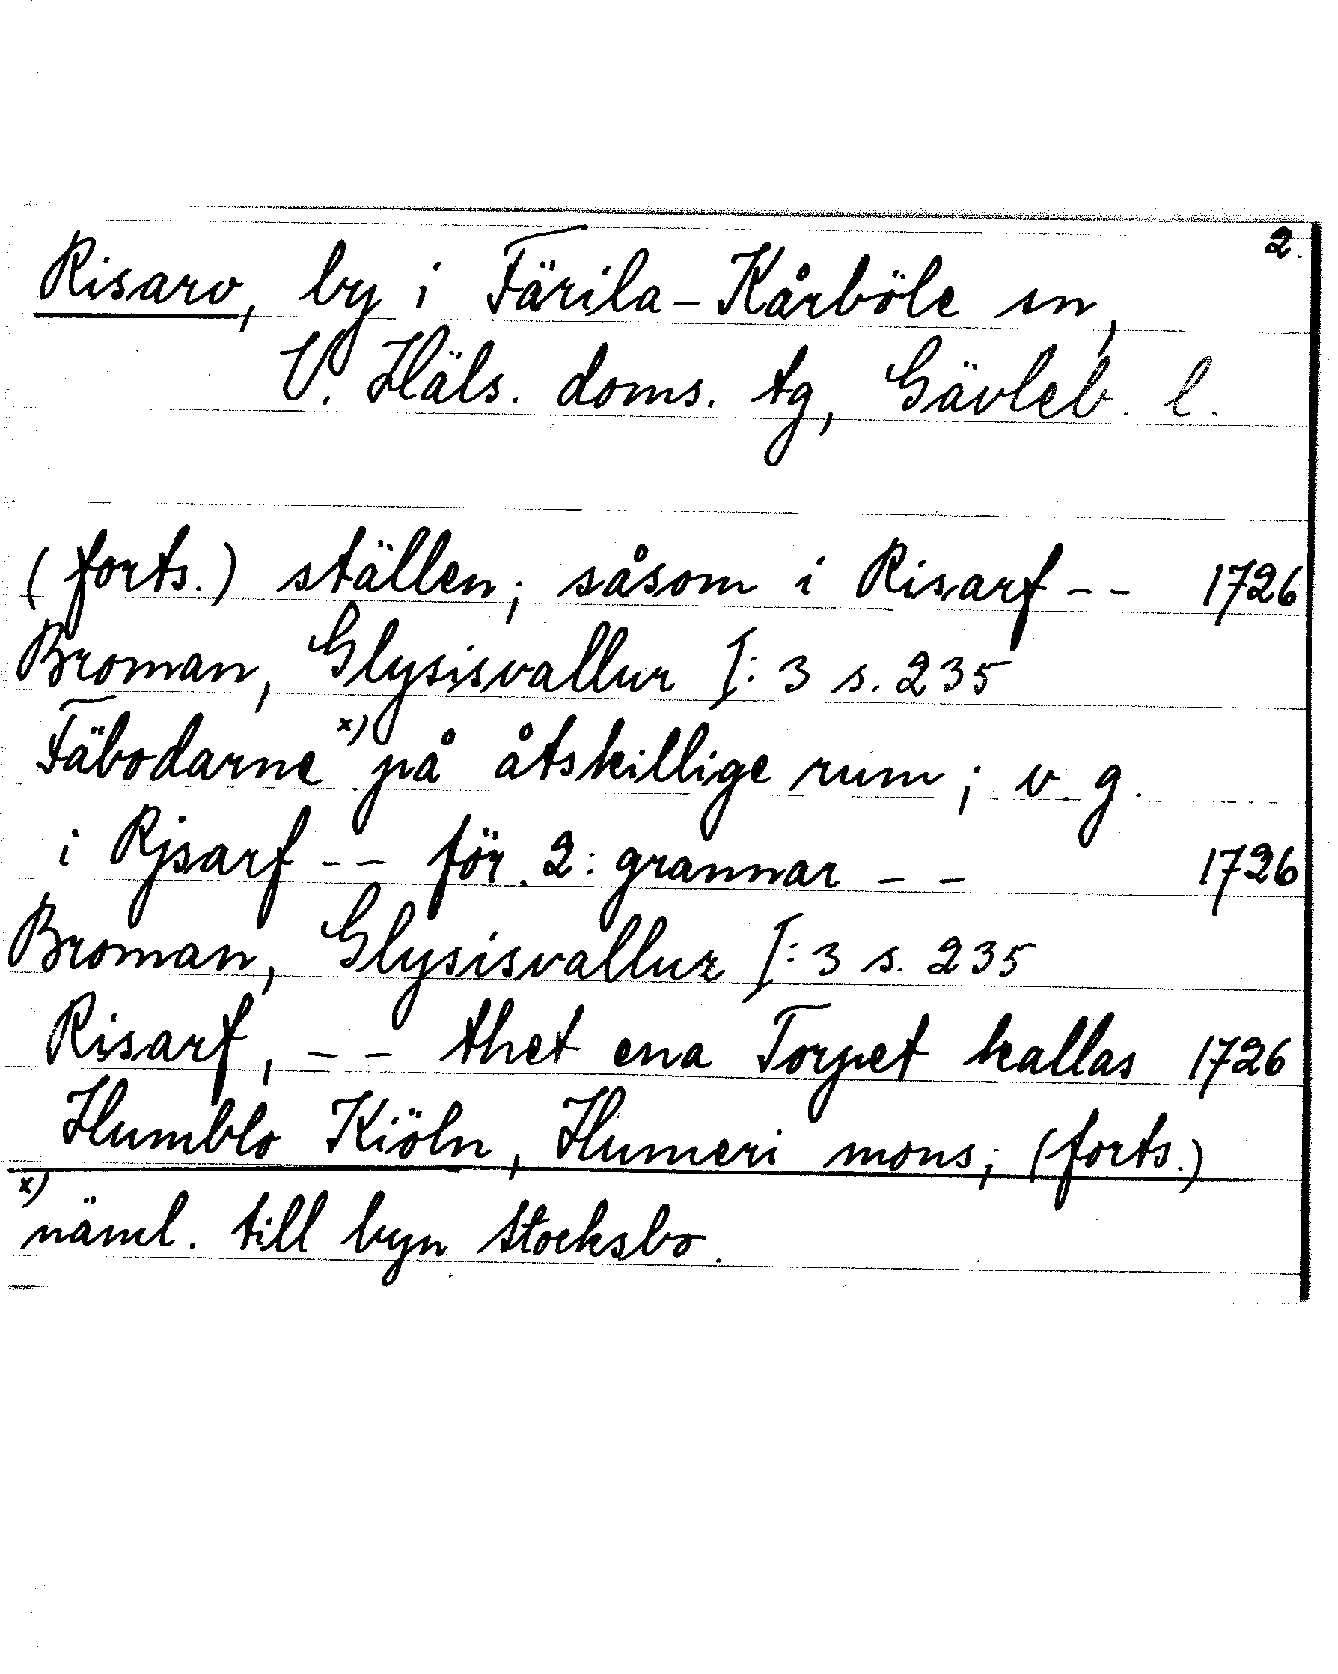 2.
Risarv, by i Färila-Kårböle sn,
V. Häls. doms. tg, Gävleb. l.
(forts.) ställen; såsom i Risarf -- 1726
Broman, Glysisvallur I:3 s. 235
Fäbodarne x) på åtskillige rum; v. g.
i Rjsarf -- för 2: grannar -- 1726
Broman, Glysisvallur I:3 s. 235
Risarf, -- thet ena Torpet kallas 1726
Humblo Kiöln, Humeri mons; (forts.)
x) näml. till byn Stocksbo.